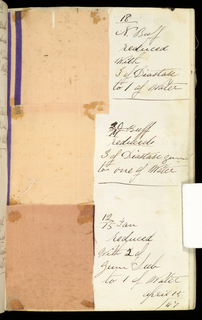 18
N Buff
reduced
with
3 of Diastate
to 1 of Water
Buff
reduced
3 of Diastate gum
to one of Water
12/15 Tan
reduced
with 2 of
Gum Sub
to 1 of Water
67